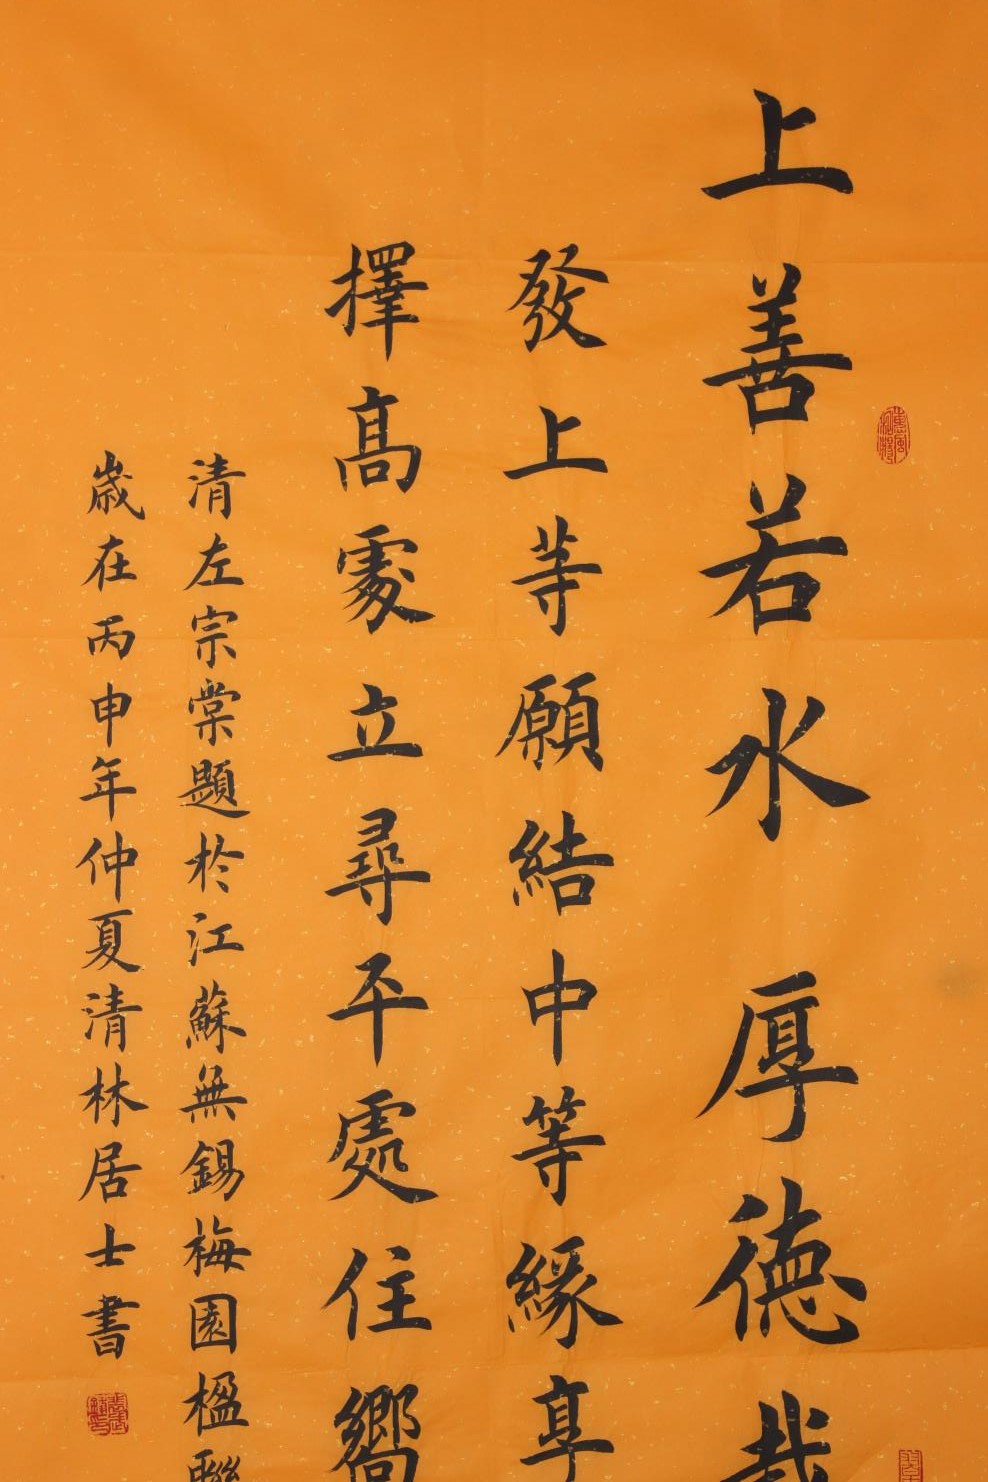 上善若水厚德載
發上等願結中等緣享
擇高處立尋平處住嚮
清左宗棠題於江蘇無錫梅園楹聯
歲在丙申年仲夏清林居士書